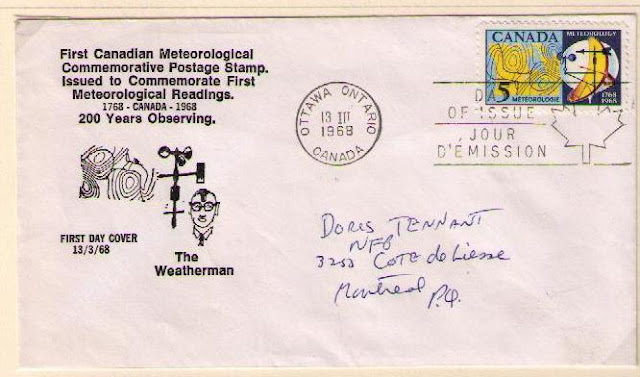 First Canadian Meteorological
Commemorative Postage Stamp.
Issued to Commemorate First
Meteorological Readings.
1768 - CANADA - 1968
200 Years Observing.
FIRST DAY COVER
13/3/68
The
Weatherman
OTTAWA ONTARIO
13 III
1968
CANADA
CANADA
METEOROLOGY
5
METEOROLOGIE
1768
1968
OF ISSUE
JOUR
D'ÉMISSION
DORIS TENNANT
NFB
3255 COTE de Liesse
Montreal P.Q.